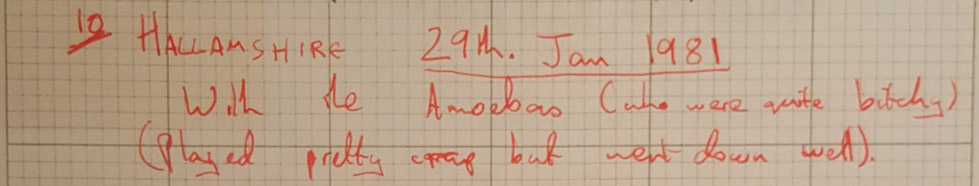 10 HALLAMSHIRE 29th. Jan 1981
With the Amoebas (who were quite bitchy)
(Played pretty crap but went down well).